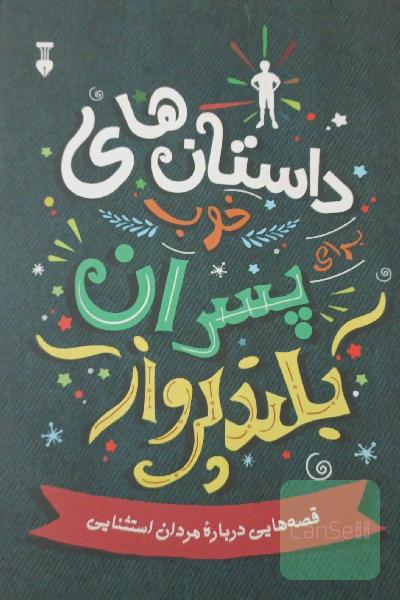 داستان‌های
خوب
برای
پسران
بلندپرواز
قصه‌هایی دربارهٔ مردان استثنایی
CanSell